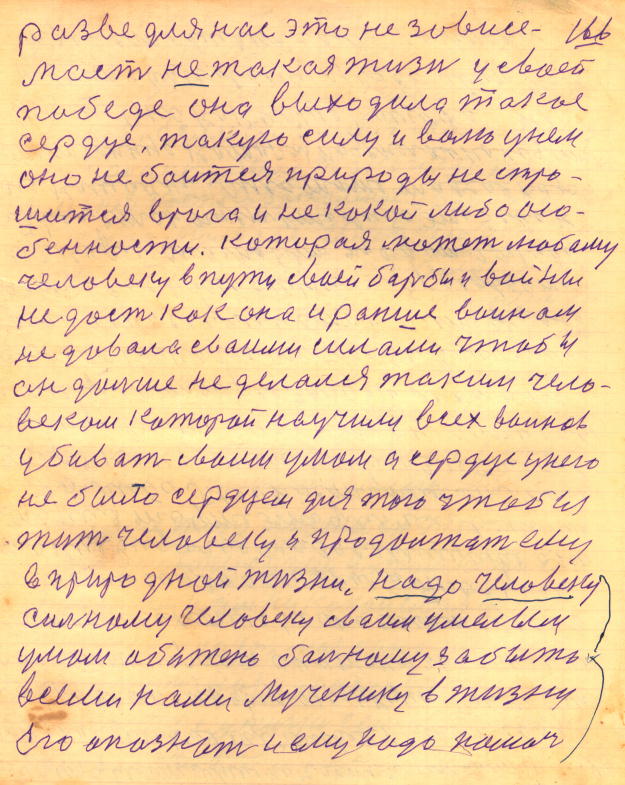 разве для нас это не зовисе- 166
мост не такая жизн у своей
победе она выходила такое
сердце, такую силу и волю унем
оно не боится природы не стра-
шится врага и не какой либо осо-
бенности. которая может любаму
человеку в пути своей барбы и войны
не дост как она и ранше воинам
не довала своими силами чтобы
он дольше не делался таким чело-
веком каторой научили всех воинов
убиват своим умом а сердце унего
не было сердцем для того чтобы
жит человеку и продолжат ему
в природной жизни. надо человеку
силному человеку своим умелым
умом обижено балному забыто
всеми нами мученику в жизни
Его опознат и ему надо помоч